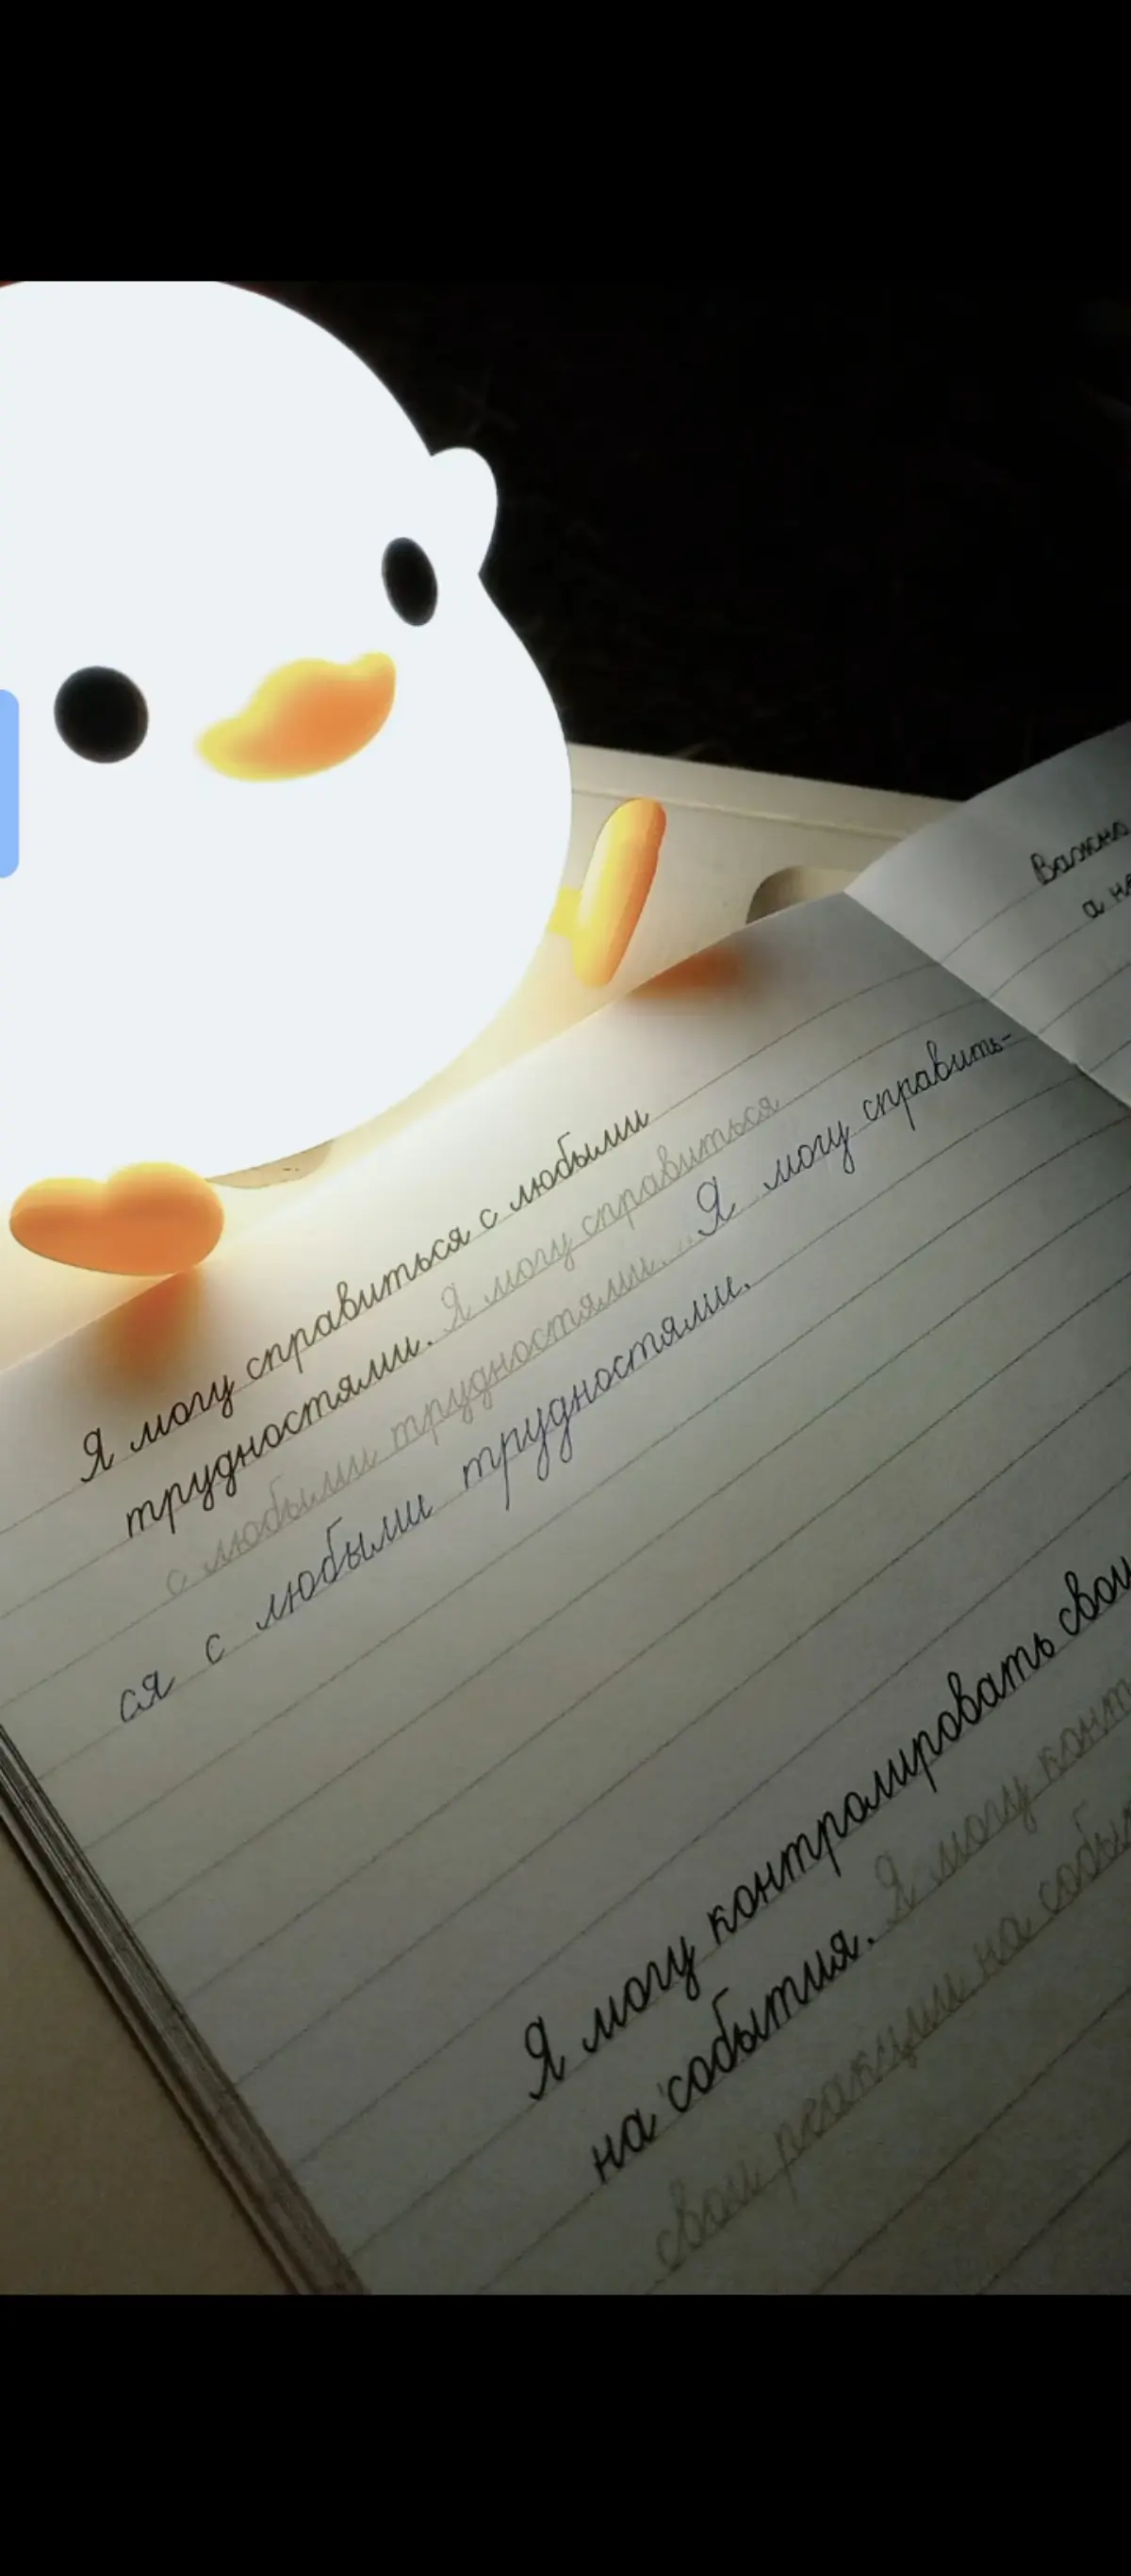 Важно
а не
Я могу справиться с любыми
трудностями. Я могу справиться
с любыми трудностями. Я могу справить-
ся с любыми трудностями.
Я могу контролировать свои
на события. Я могу
свои реакции на